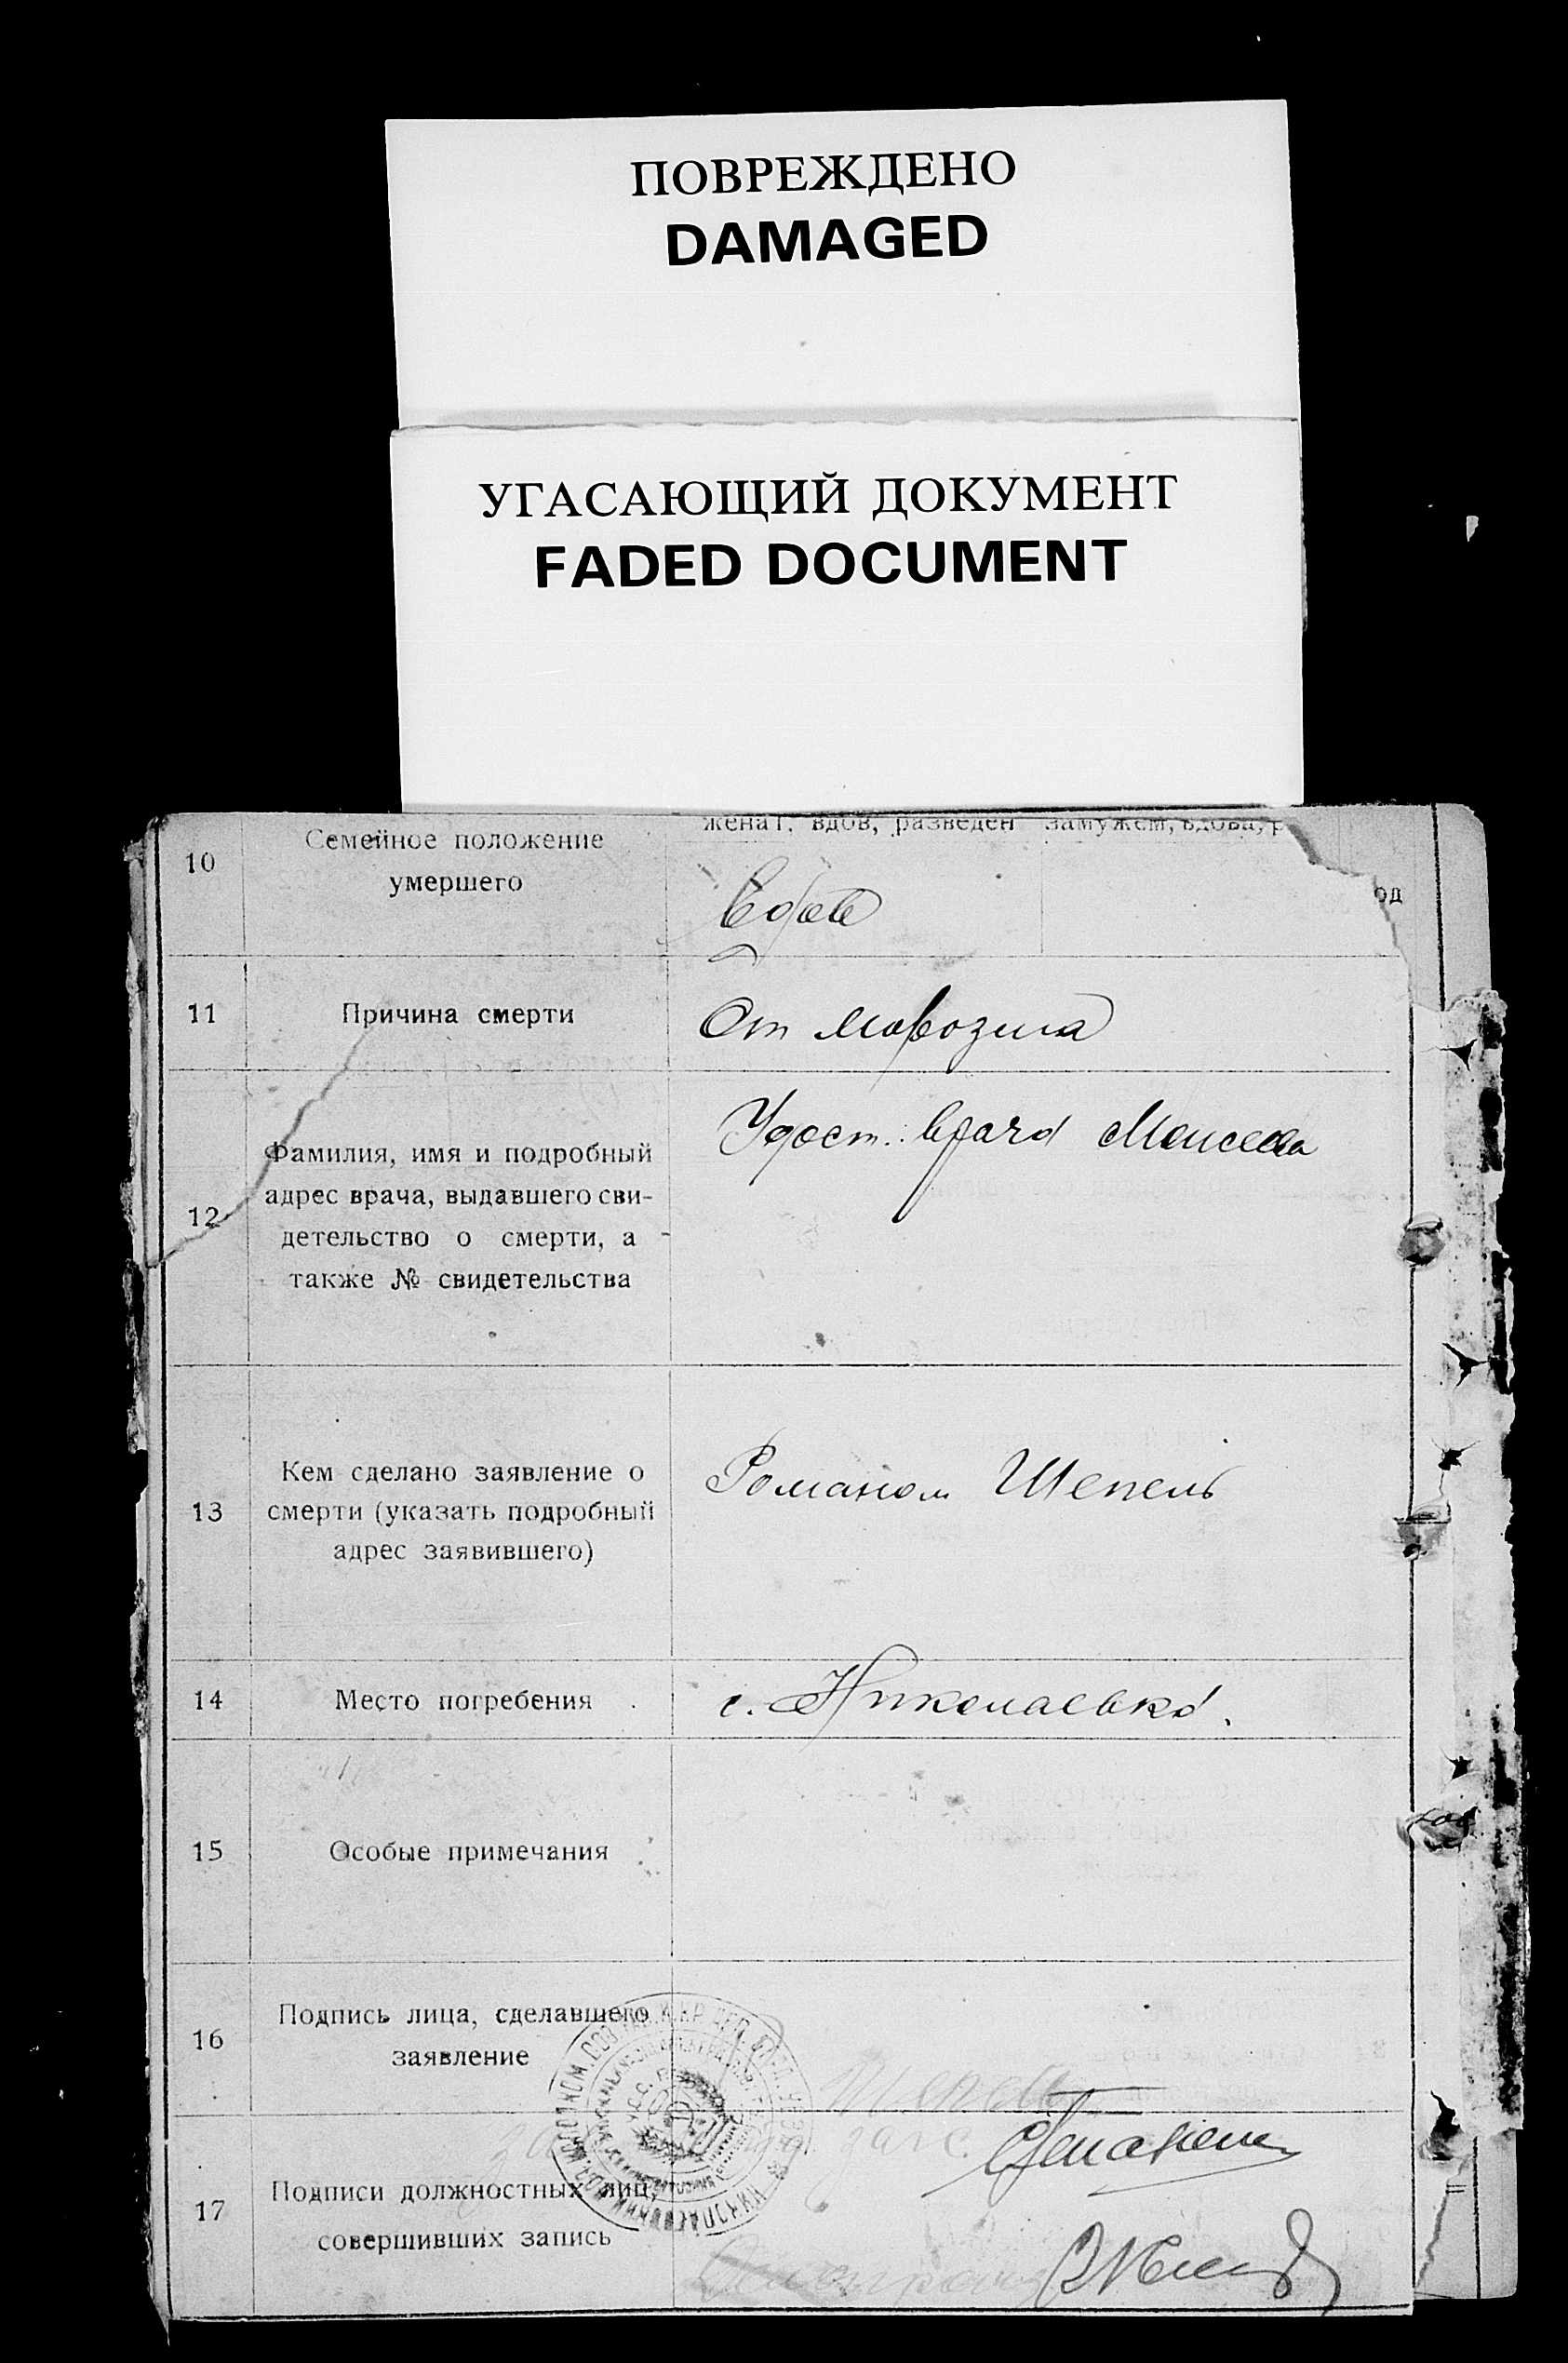 ПОВРЕЖДЕНО
DAMAGED
УГАСАЮЩИЙ ДОКУМЕНТ
FADED DOCUMENT
женат, вдов, разведен замужем, вдова, р
10 Семейное положение
умершего
Вдов
од
11 Причина смерти От
12 Фамилия, имя и подробный
адрес врача, выдавшего сви-
детельство о смерти, а
также № свидетельства
Удост. врача Моисеева
13 Кем сделано заявление о
смерти (указать подробный
адрес заявившего)
Романом Шепель
14 Место погребения с. Николаевка.
15 Особые примечания
16 Подпись лица, сделавшего
заявление
17 Подписи должностных лиц,
совершивших запись